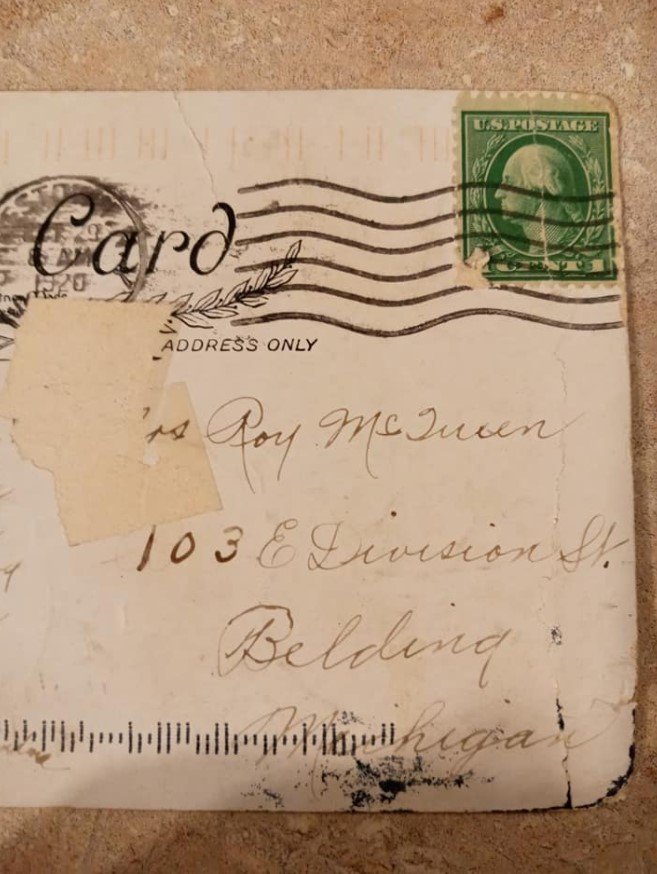 U.S.POSTAGE
Card
1920
ADDRESS ONLY
CENT 1
Mrs Roy McQueen
103 E Division St.
Belding
Michigan